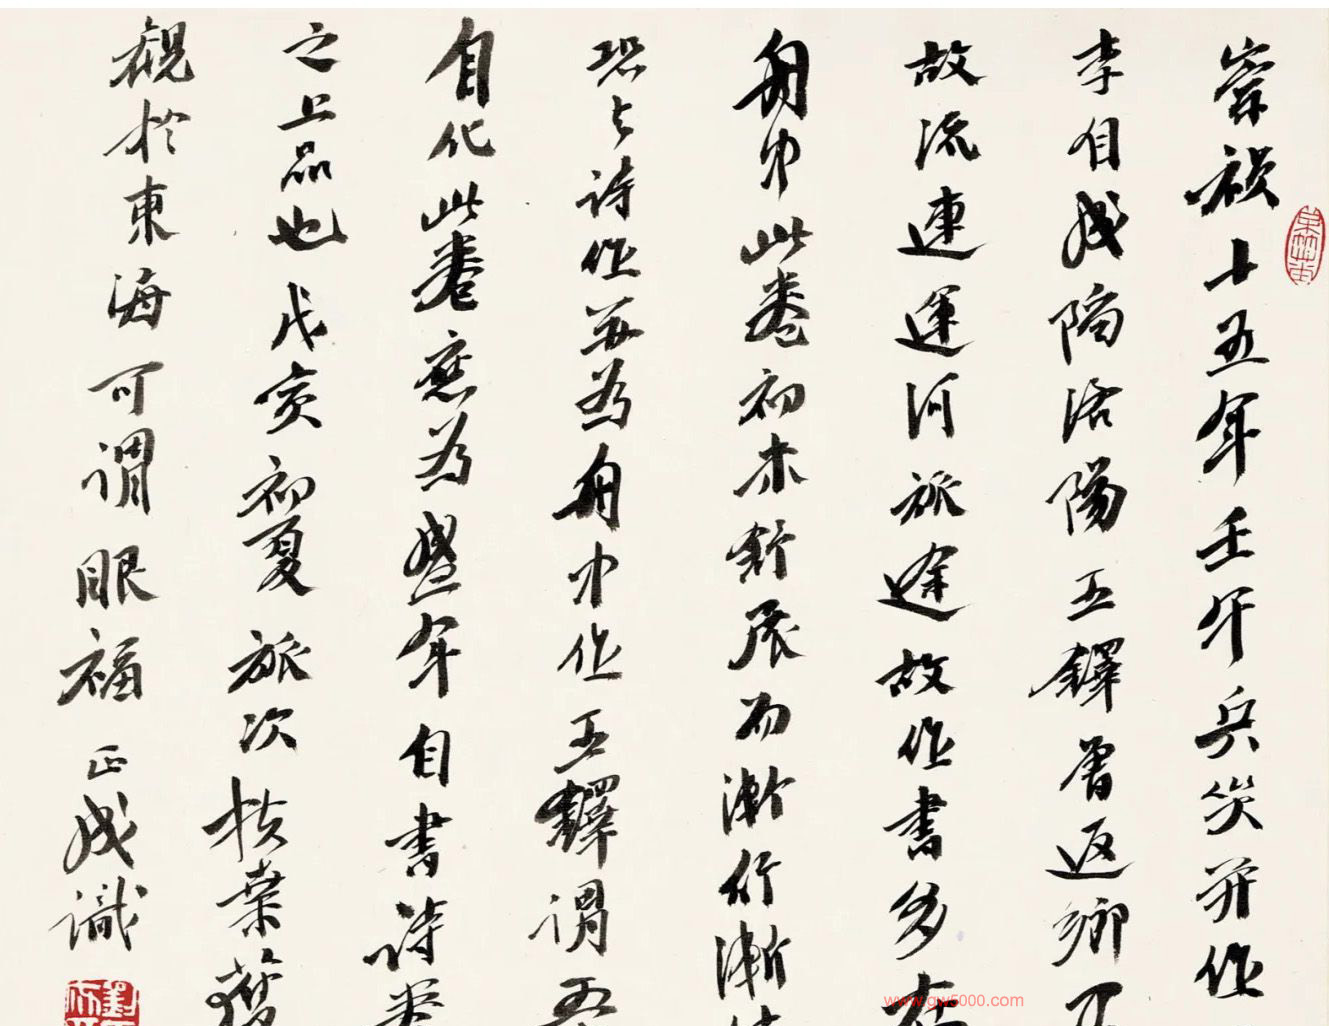 崇祯十五年壬午兵災并作
李自成陷洛陽王鐸曾返鄉不
故流連運河旅途故作書多在
舟中此卷初未舒展而漸行漸
恐与詩作並為舟中作王鐸謂五
自化此卷應為盛年自書詩卷
之上品也戊亥初夏旅次扶桑獲
觀於東海可謂眼福正成識
www.gw5000.com